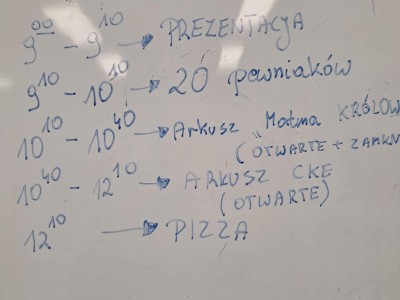 9⁰⁰ - 9¹⁰ → PREZENTACJA
9¹⁰ - 10¹⁰ → 20 pewniaków
10¹⁰ - 10⁴⁰ → Arkusz „Matma KRÓLOW
(OTWARTE + ZAMKN
10⁴⁰ - 12¹⁰ → ARKUSZ CKE
(OTWARTE)
12¹⁰ → PIZZA